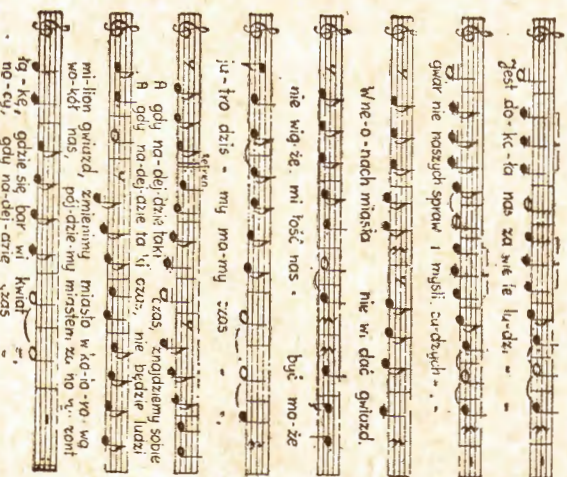 Jest do-ko-ła nas za wie le lu-dzi - -
gwar nie naszych spraw i myśli cu-dzych - . -
W ne-o-nach miasta nie wi dać gwiazd.
nie wię-że mi łość nas - być mo-że
ju-tro dzis - my ma-my czas - - .
refren
A gdy na-dej-dzie taki czas, znajdziemy sobie
A gdy na-dej-dzie ta ki czas, nie będzie ludzi
mi-lion gwiazd, zmienimy miasto w ko-lo-ro-wą
wo-kół nas, pój-dzie-my miastem za ho ry-zont
łą-kę, gdzie się bar wi kwiat -.
no-cy, gdy na-dej-dzie czas -